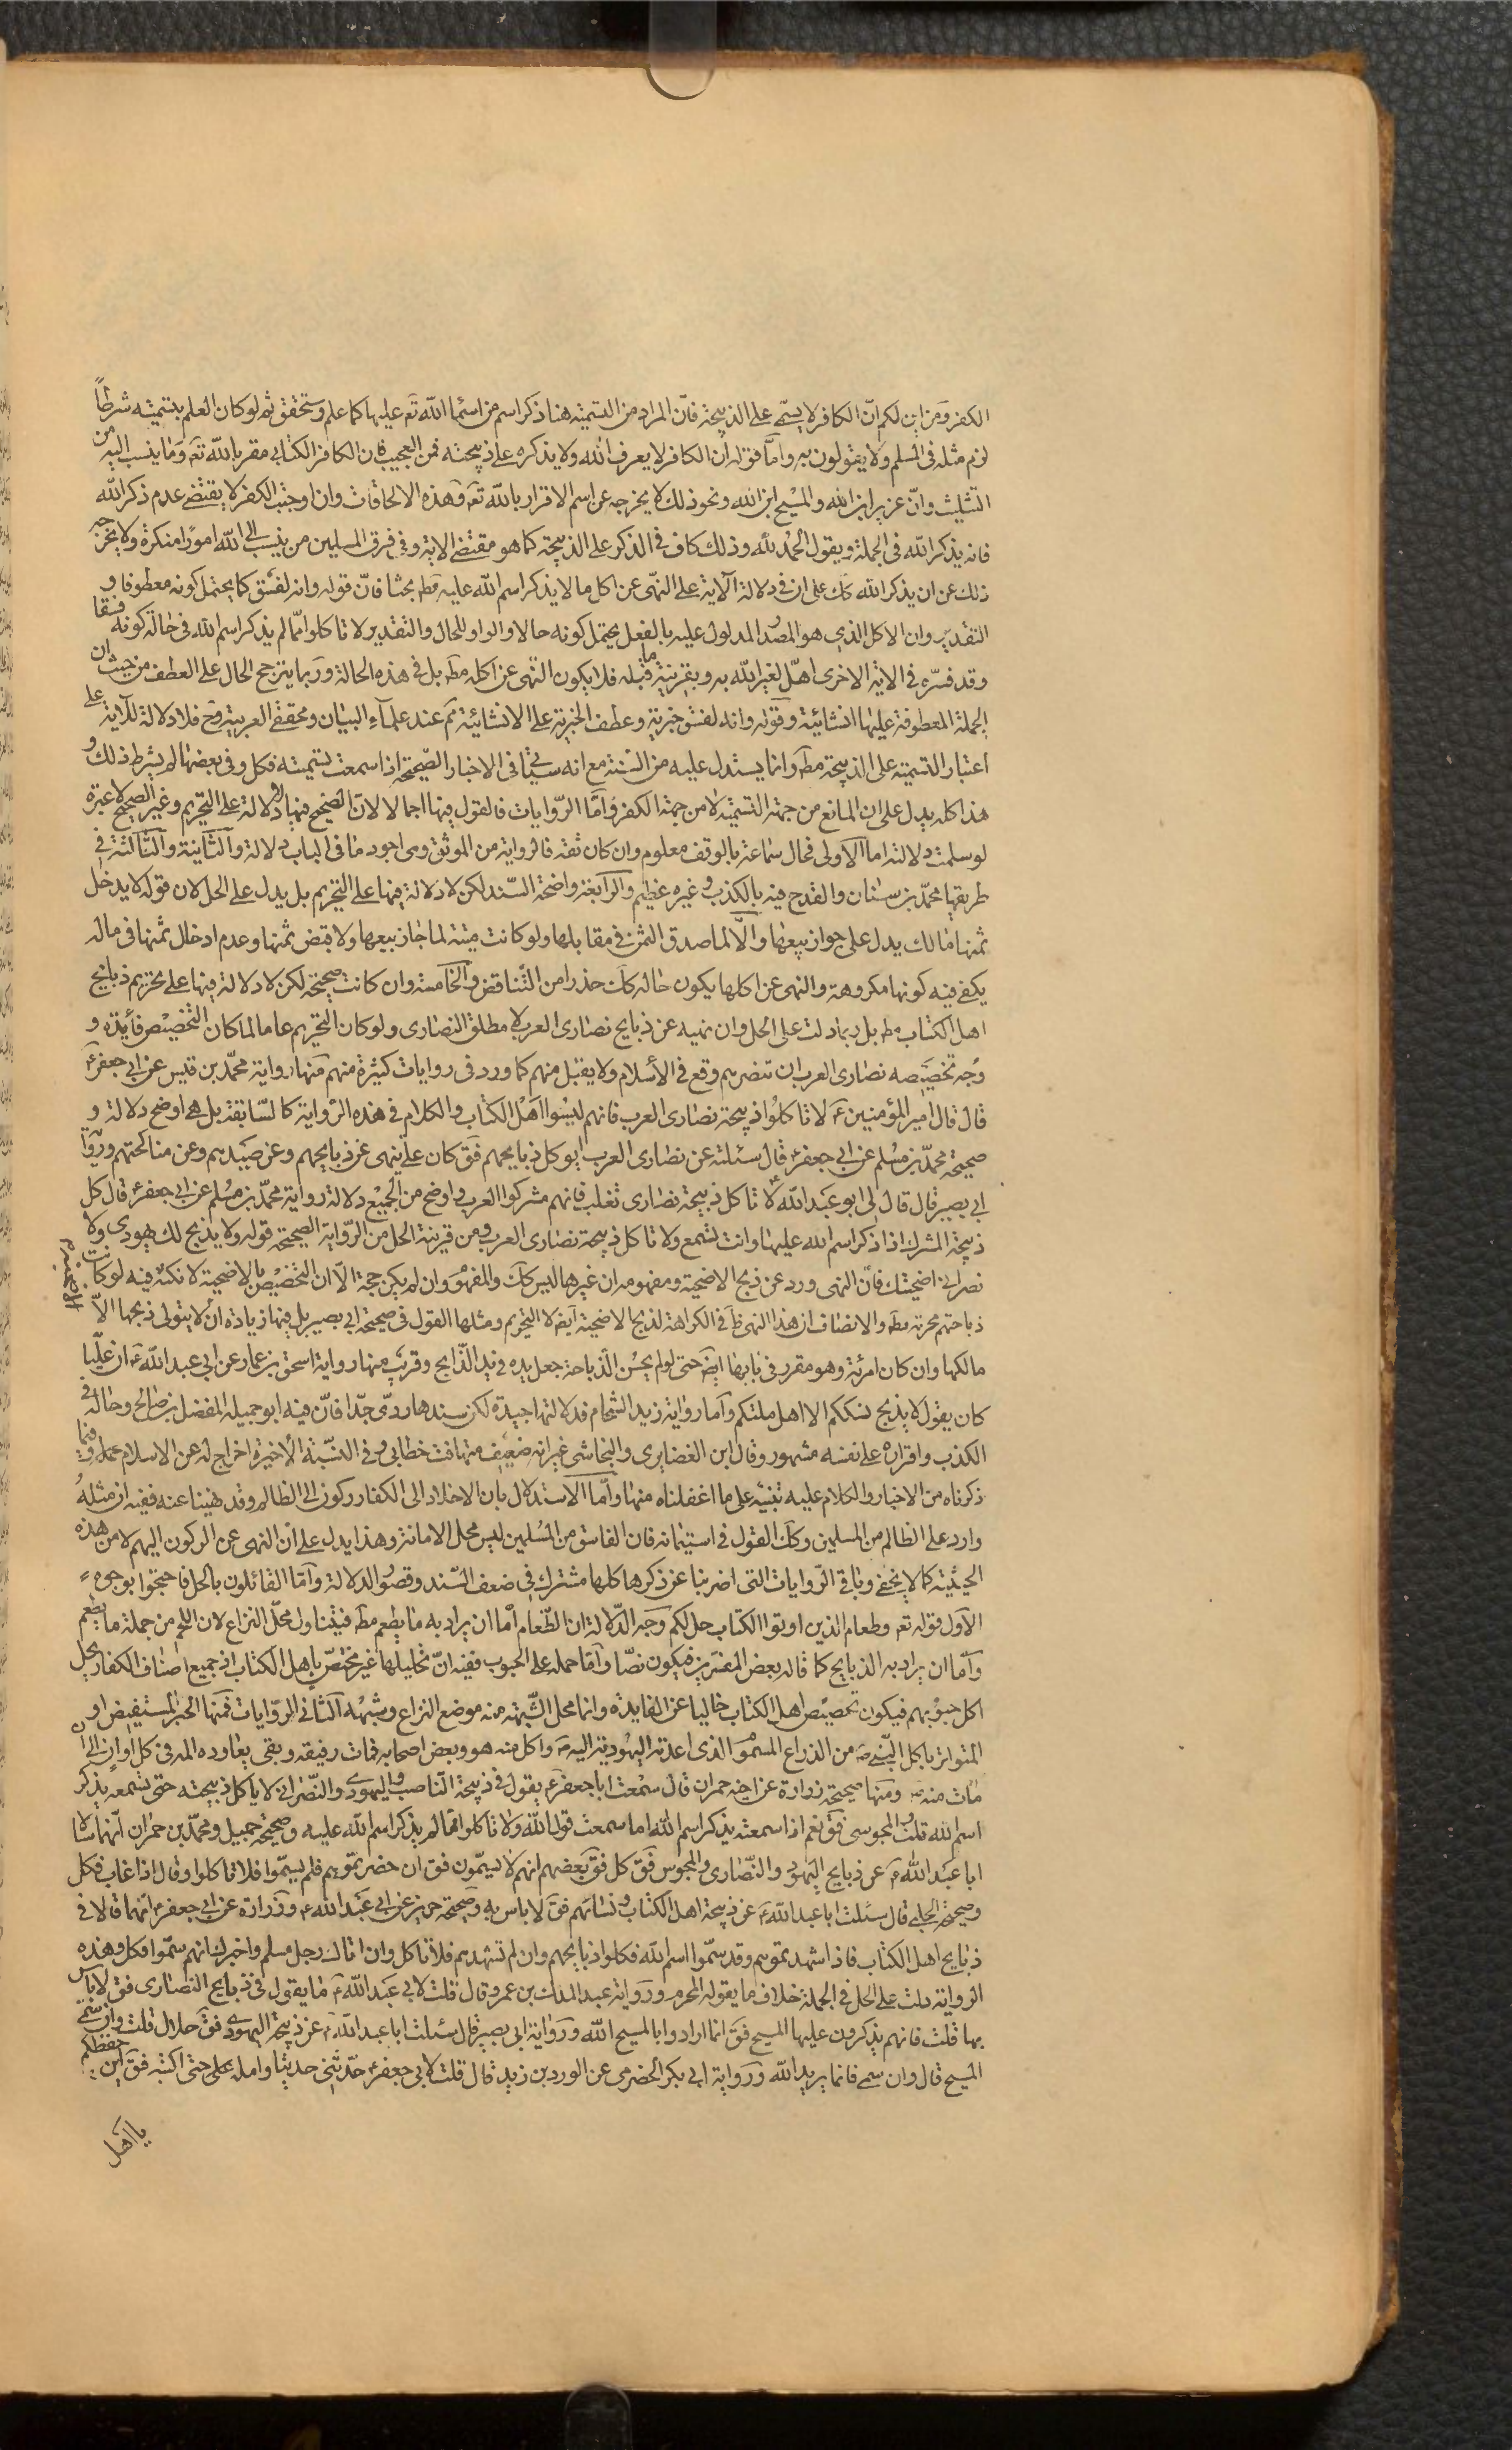 الكفر ومن اين لكم انّ الكافر لا يسمّى على الذبيحة فانّ المراد من التسمية هنا ذكر اسم من اسماء الله تع عليها كما علم وستحقق ثم لو كان العلم بتسميته شرطاً
لزم مثله فى المسلم ولا يقولون به وامّا قوله ان الكافر لا يعرف الله ولا يذكره على ذبيحته فمن العجيب فان الكافر الكتابى مقر بالله تع وما ينسب اليه من
التثليث وانّ عزير ابن الله والمسيح ابن الله ونحو ذلك لا يخرجه عن اسم الاقرار بالله تع وهذه الالحاقات وان اوجبت الكفر لا يقتضى عدم ذكر الله
فانه يذكر الله فى الجملة ويقول الحمد لله وذلك كاف فى الذكر على الذبيحة كما هو مقتضى الاية وفى فرق المسلمين من ينسب الى الله امورا منكرة ولا يخرجه
ذلك عن ان يذكر الله كك على ان فى دلالة الآية على النهى عن اكل ما لا يذكر اسم الله عليه مط بحثا فانّ قوله وانه لفسق كما يحتمل كونه معطوفا و
التقدير وان الاكل الذى هو المصدر المدلول عليه بالفعل يحتمل كونه حالا والواو للحال والتقدير لا تاكلوا ممّا لم يذكر اسم الله فى حالة كونه فسقا
وقد فسّره فى الاية الاخرى اهلّ لغير الله به وبقرينة ما قبله فلا يكون النهى عن اكله مط بل فى هذه الحالة وربما يترجح الحال على العطف من حيث ان
الجملة المعطوفة عليها انشائية وقوله وانه لفسق خبرية وعطف الخبرية على الانشائية مم عند علماء البيان ومحققى العربية وح فلا دلالة للآية على
اعتبار التسمية على الذبيحة مط وانما يستدل عليه من السنة مع انه سياتى فى الاخبار الصحيحة اذا سمعت تسميته فكل وفى بعضها لم يشترط ذلك و
هذا كله يدل على ان المانع من جهة التسمية لا من جهة الكفر وامّا الروايات فالقول فيها اجمالا لان الصحيح فيها لا دلالة على التحريم وغير الصحيح لا عبرة
لو سلمت دلالته اما الاولى فحال سماعة بالوقف معلوم وان كان ثقة فالرواية من الموثق وهى اجود ما فى الباب دلالة والثانية والثالثة فى
طريقها محمّد بن سنان والقدح فيه بالكذب وغيره عظيم والرابعة واضحة السند لكن لا دلالة فيها على التحريم بل يدل على الحل لان قوله لا يدخل
ثمنها مالك يدل على جواز بيعها والّا لما صدق الثمن فى مقابلها ولو كانت ميتة لما جاز بيعها ولا قبض ثمنها وعدم ادخال ثمنها فى ماله
يكفى فيه كونها مكروهة والنهى عن اكلها يكون حاله كك حذرا من التناقض والخامسة وان كانت صحيحة لكن لا دلالة فيها على تحريم ذبايح
اهل الكتاب مط بل ربما دلت على الحل وان نهيه عن ذبايح نصارى العرب لا مطلق النصارى ولو كان التحريم عاما لما كان التخصيص فائدة و
وجه تخصيصه نصارى العرب ان تنصرهم وقع فى الاسلام ولا يقبل منهم كما ورد فى روايات كثيرة منهم منها رواية محمّد بن قيس عن ابى جعفر ع
قال قال امير المؤمنين ع لا تاكلوا ذبيحة نصارى العرب فانهم ليسوا اهل الكتاب والكلام فى هذه الرواية كالسّابقة بل هى اوضح دلالة و
صحيحة محمّد بن مسلم عن ابى جعفر ع قال سئلته عن نصارى العرب ايوكل ذبايحهم فق كان على ينهى عن ذبايحهم وعن صيدهم وعن مناكحتهم ورواية
ابى بصير قال قال لى ابو عبد الله ع لا تاكل ذبيحة نصارى تغلب فانهم مشركوا العرب واوضح من الجميع دلالة رواية محمّد بن مسلم عن ابى جعفر ع قال كل
ذبيحة المشرك اذا ذكر اسم الله عليها وانت تسمع ولا تاكل ذبيحة نصارى العرب ومن قرينة الحل من الرواية الصحيحة قوله ولا يذبح لك يهودى ولا
نصرانى اضحيتك فانّ النهى ورد عن ذبح الاضحية ومفهومه ان غيرها ليس كك والمفهوم وان لم يكن حجة الّا ان التخصيص بالاضحية لا نكتة فيه لو كانت
ذباحتهم محرمة مط والانصاف ان هذا النهى ظ فى الكراهة لذبح الاضحية لا التحريم ومثلها القول فى صحيحة ابى بصير بل فيها زيادة ان لا يتولى ذبحها الّا
مالكها وان كان امرئة وهو مقرر فى بابها ايض حتى لو لم يحسن الذباحة جعل يده فى يد الذابح وقريب منها رواية اسحق بن عمار عن ابى عبد الله ع ان عليّا
كان يقول لا يذبح نسككم الا اهل ملتكم وامّا رواية زيد الشحام فدلالتها جيدة لكن سندها ردىّ جدّا فانّ فيه ابو جميلة المفضل بن صالح وحاله فى
الكذب واقراره على نفسه مشهور وقال ابن الغضايرى والنجاشى غير انه ضعيف متهافت خطابى وفى النسبة الاخيرة اخراج له عن الاسلام جملة وفيما
ذكرناه من الاخبار والكلام عليه تنبيه على ما اغفلناه منها وامّا الاستدلال بان الاخلاد الى الكفار ركون الى الظالم وقد نهينا عنه ففيه ان مثله
وارد على الظالم من المسلمين وكك القول فى استيمانه فان الفاسق من المسلمين ليس محل الامانة وهذا يدل على ان النهى عن الركون اليهم لا من هذه
الحيثية كما لا يخفى وباقى الروايات التى اضربنا عن ذكرها كلها مشترك فى ضعف السند وقصور الدلالة وامّا القائلون بالحل فاحتجوا بوجوه
الاول قوله تع وطعام الذين اوتوا الكتاب حل لكم وجه الدلالة ان الطعام امّا ان يراد به ما يطعم مط فيتناول محلّ النزاع لان اللحم من جملة ما يطعم
وامّا ان يراد به الذبايح كما قاله بعض المفسرين فيكون نصّا وامّا حمله على الحبوب ففيه انّ تحليلها غير مختصّ باهل الكتاب اذ جميع اصناف الكفار يحل
اكل حبوبهم فيكون تخصيص اهل الكتاب خاليا عن الفايدة وانما محل الشبهة منه موضع النزاع وشبهه الثانى الروايات فمنها الخبر المستفيض او
المتواتر باكل النبى ص من الذراع المسموم الذى اعدته اليهودية اليه ص واكل منه هو وبعض اصحابه فمات رفيقه وبقى يعاوده المه فى كل اوان الى ان
مات منه ص ومنها صحيحة زرارة عن اخيه حمران قال سمعت ابا جعفر ع يقول فى ذبيحة الناصب واليهودى والنصرانى لا ياكل ذبيحته حتى تسمعه يذكر
اسم الله قلت المجوسى فق نعم اذا سمعته يذكر اسم الله اما سمعت قول الله ولا تاكلوا ممّا لم يذكر اسم الله عليه وصحيحة جميل ومحمّد بن حمران انهما سالا
ابا عبد الله ع عن ذبايح اليهود والنصارى والمجوس فق كل فق بعضهم انهم لا يسمّون فق ان حضرتموهم فلم يسمّوا فلا تاكلوا وقال اذا غاب فكل
وصحيحة الحلبى قال سئلت ابا عبد الله ع عن ذبيحة اهل الكتاب ونسائهم فق لا باس به وصحيحة حريز عن ابى عبد الله ع وزرارة عن ابى جعفر ع انهما قالا فى
ذبايح اهل الكتاب فاذا شهدتموهم وقد سمّوا اسم الله فكلوا ذبايحهم وان لم تشهدهم فلا تاكل وان اتاك رجل مسلم واخبرك انهم سمّوا فكل وهذه
الرواية دلت على الحل فى الجملة خلاف ما يقوله المحرم ورواية عبد الملك بن عمرو قال قلت لابى عبد الله ع ما يقول فى ذبايح النصارى فق لا باس
بها قلت فانهم يذكرون عليها المسيح فق انما ارادوا بالمسيح الله ورواية ابى بصير قال سئلت ابا عبد الله ع عن ذبيحة اليهودى فق حلال قلت وان سمّى
المسيح قال وان سمى فانما يريد الله ورواية ابى بكر الحضرمى عن الورد بن زيد قال قلت لابى جعفر ع حدّثنى حديثا وامله على حتى اكتبه فق اين حفظكم
يا اهل